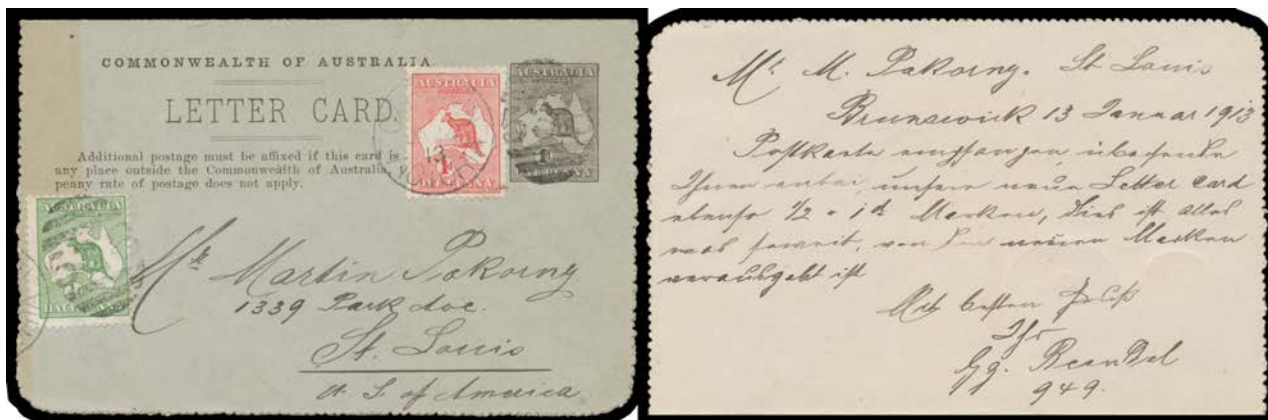 COMMONWEALTH OF AUSTRALIA.
LETTER CARD.
Additional postage must be affixed if this card is
any place outside the Commonwealth of Australia,
penny rate of postage does not apply.
AUSTRALIA
AUSTRALIA
AUSTRALIA
HALF PENNY
Mr Martin Pokorny
1339 Park Ave.
St. Louis
U. S. of America
Mr M. Pokorny. St Louis
Brunswick 13 Januar 1913
Postkarte empfangen, übersende
Ihnen anbei unsere neue Letter Card
ebenso 1/2 & 1d Marken, dies ist alles
was soweit, von den neuen Marken
verausgabt ist
Mit besten Gruß
Ihr
Gg.
949.